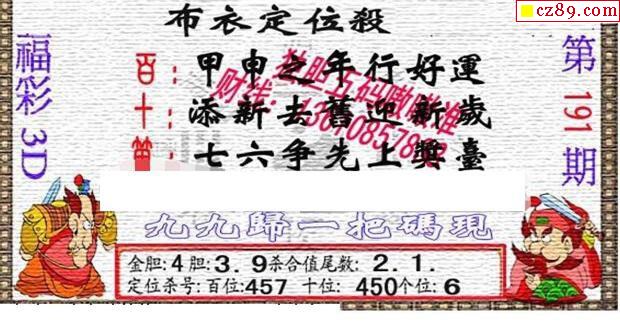 cz89.com
布衣定位殺
福彩3D
第191期
百：甲申之年行好運
十：添新去舊迎新歲
個：七六争先上獎臺
九九歸一把碼現
金胆:4胆:3.9杀合值尾数: 2.1.
定位杀号:百位:457 十位: 450个位:6